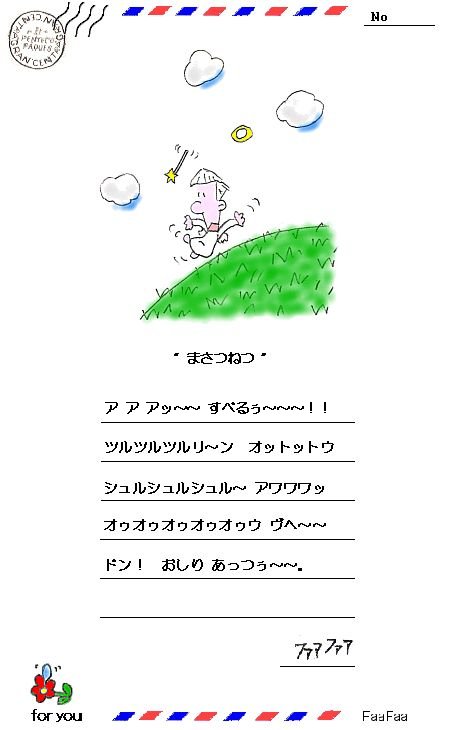 No
" まさつねつ "
ア ア アッ～～ すべるぅ～～～！！
ツルツルツルリ～ン　オットットウ
シュルシュルシュル～ アワワワッ
オゥオゥオゥオゥオゥウ ヴヘ～～
ドン！　おしり あっつぅ～～。
ファファ
for you
FaaFaa